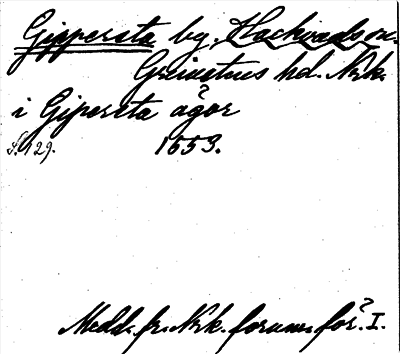 Gippersta by, Hackvads sn.
Grimstens hd. Nrk.
i Gipersta ågor
f. 129. 1553.
Medd. fr. Nrk. fornm. för. I.